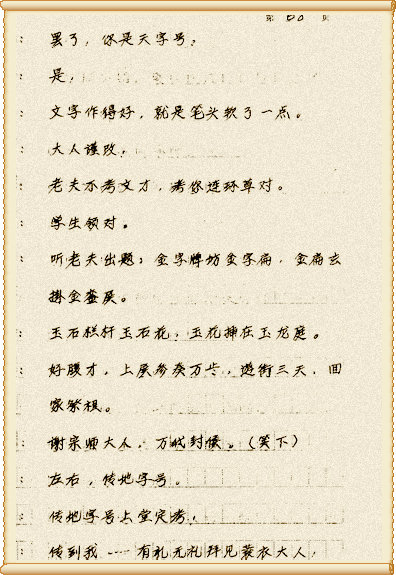 第 页
: 罢了，你是天字号？
: 是，
: 文字作得好，就是笔头软了一点。
: 大人谨改，
: 老夫不考文才，考你连环草对。
: 学生领对。
: 听老夫出题：金字牌坊金字扁，金扁去
掛金銮展。
: 玉石栏杆玉石花，玉花押在玉龙庭。
: 好腹才，上展参葵万步，遊街三天，回
家祭祖。
: 谢宗师大人，万代封候。（笑下）
: 左右，传地字号。
: 传地字号上堂定考，
: 传到我——有礼无礼拜见蓑衣大人，